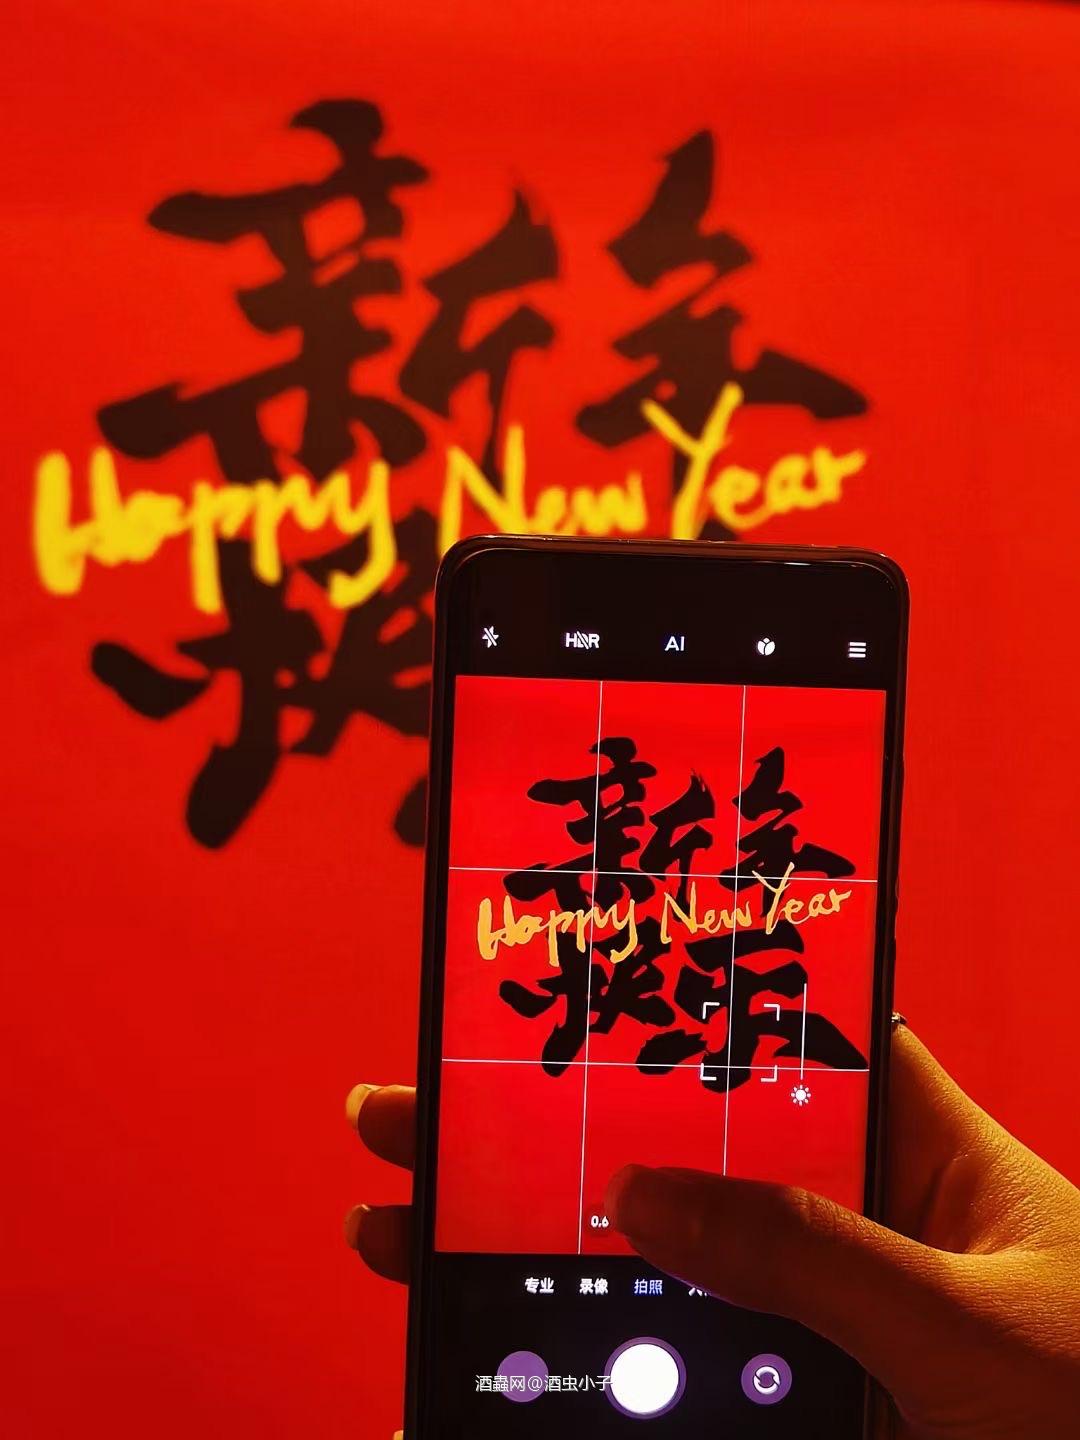 新年
Happy New Year
快
HDR
AI
新年
Happy New Year
快乐
0.6
专业 录像 拍照
酒蟲网@酒虫小子